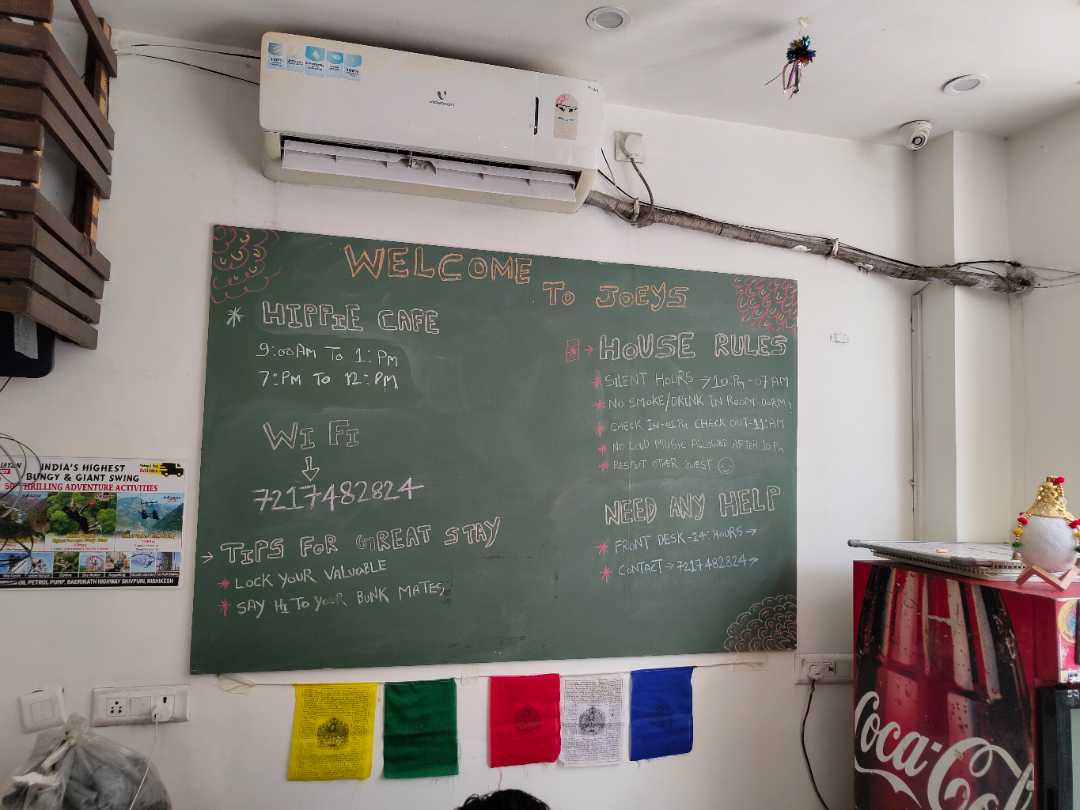 WELCOME
TO JOEYS
HIPPIE CAFE
9:00AM TO 1:PM
7:PM TO 12:PM
WI FI
7217482824
→ TIPS FOR GREAT STAY
* LOCK YOUR VALUABLE
* SAY HI TO YOUR BUNK MATES
→ HOUSE RULES
* SILENT HOURS → 10:PM-07AM
* NO SMOKE/DRINK IN ROOM
* CHECK IN-01PM CHECK OUT-11:AM
* NO LOUD MUSIC AFTER 10PM
* OTHER GUEST
NEED ANY HELP
* FRONT DESK HOURS →
* CONTACT → 7217482824
INDIA'S HIGHEST
BUNGY & GIANT SWING
THRILLING ADVENTURE ACTIVITIES
PETROL PUMP, BADRINATH HIGHWAY SHIVPURI, RISHIKESH
Coca-Cola